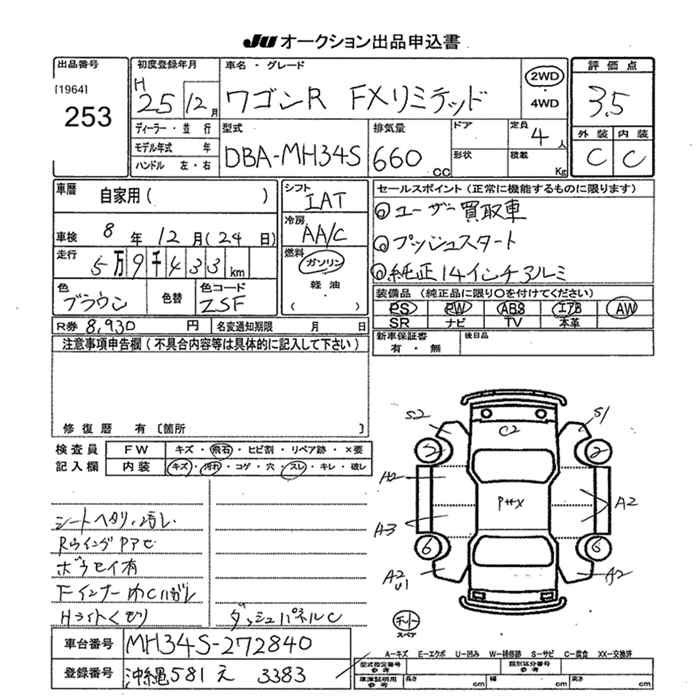 JU オークション出品申込書
出品番号
[1964]
253
初度登録年月
H
25 12月
車名・グレード
ワゴンR FXリミテッド
2WD
・
4WD
評価点
3.5
外装 内装
C C
ディーラー・並行
モデル年式 年
ハンドル 左・右
型式
DBA-MH34S
排気量
660 cc
ドア
形状
定員
4人
積載
Kg
車歴
自家用( )
シフト
IAT
車検 8年 12月(24日)
冷房
AA/C
走行
5万9千433km
燃料
ガソリン
・
軽油
( )
色
ブラウン
色替
色コード
ZSF
R券 8,930円
名変通知期限 月 日
セールスポイント (正常に機能するものに限ります)
◎ユーザー買取車
◎プッシュスタート
◎純正14インチアルミ
装備品 (純正品に限り○を付けてください)
PS PW ABS エアB AW
SR ナビ TV 本革
新車保証書
有・無
後日品
注意事項申告欄(不具合内容等は具体的に記入して下さい)
修復歴 有〔箇所 〕
検査員
記入欄
FW キズ・飛石・ヒビ割・リペア跡・×要
内装 キズ・汚れ・コゲ・穴・スレ・キレ・破レ
シートヘタリ、汚レ
ボウセイ有
Hライトくもり
ダッシュパネルC
S2
S1
C2
2
2
A2
A3
A2
A2
U1
A2
6
6
スペア
車台番号 MH34S-272840
登録番号 沖縄 581 え 3383
A-キズ E-エクボ U-凹み W-補修跡 S-サビ C-腐食 XX-交換済
型式指定番号
参考
類別区分番号
参考
車庫証明用
参考
長さ cm
幅 cm
高さ cm